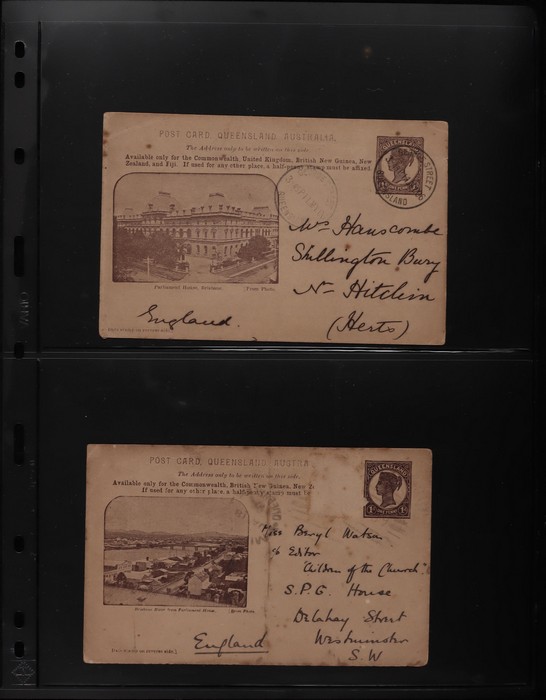 POST CARD, QUEENSLAND, AUSTRALIA.
The Address only to be written on this side.
Available only for the Commonwealth, United Kingdom, British New Guinea, New
Zealand, and Fiji. If used for any other place, a half-penny stamp must be affixed
QUEENSLAND
ONE PENNY
STREET
Parliament House, Brisbane. [From Photo.
Mrs Hanscombe
Shillington Bury
Nr Hitchin
(Herts)
England.
POST CARD, QUEENSLAND AUSTRA
The Address only to be written on this side.
Available only for the Commonwealth, British New Guinea, New Z
If used for any other place, a half-penny stamp must be
QUEENSLAND
ONE PENNY
[From Photo.
Miss Beryl Watson
c/o Editor
"Children of the Church".
S.P.G. House
Delahay Street
Westminster
S W
England